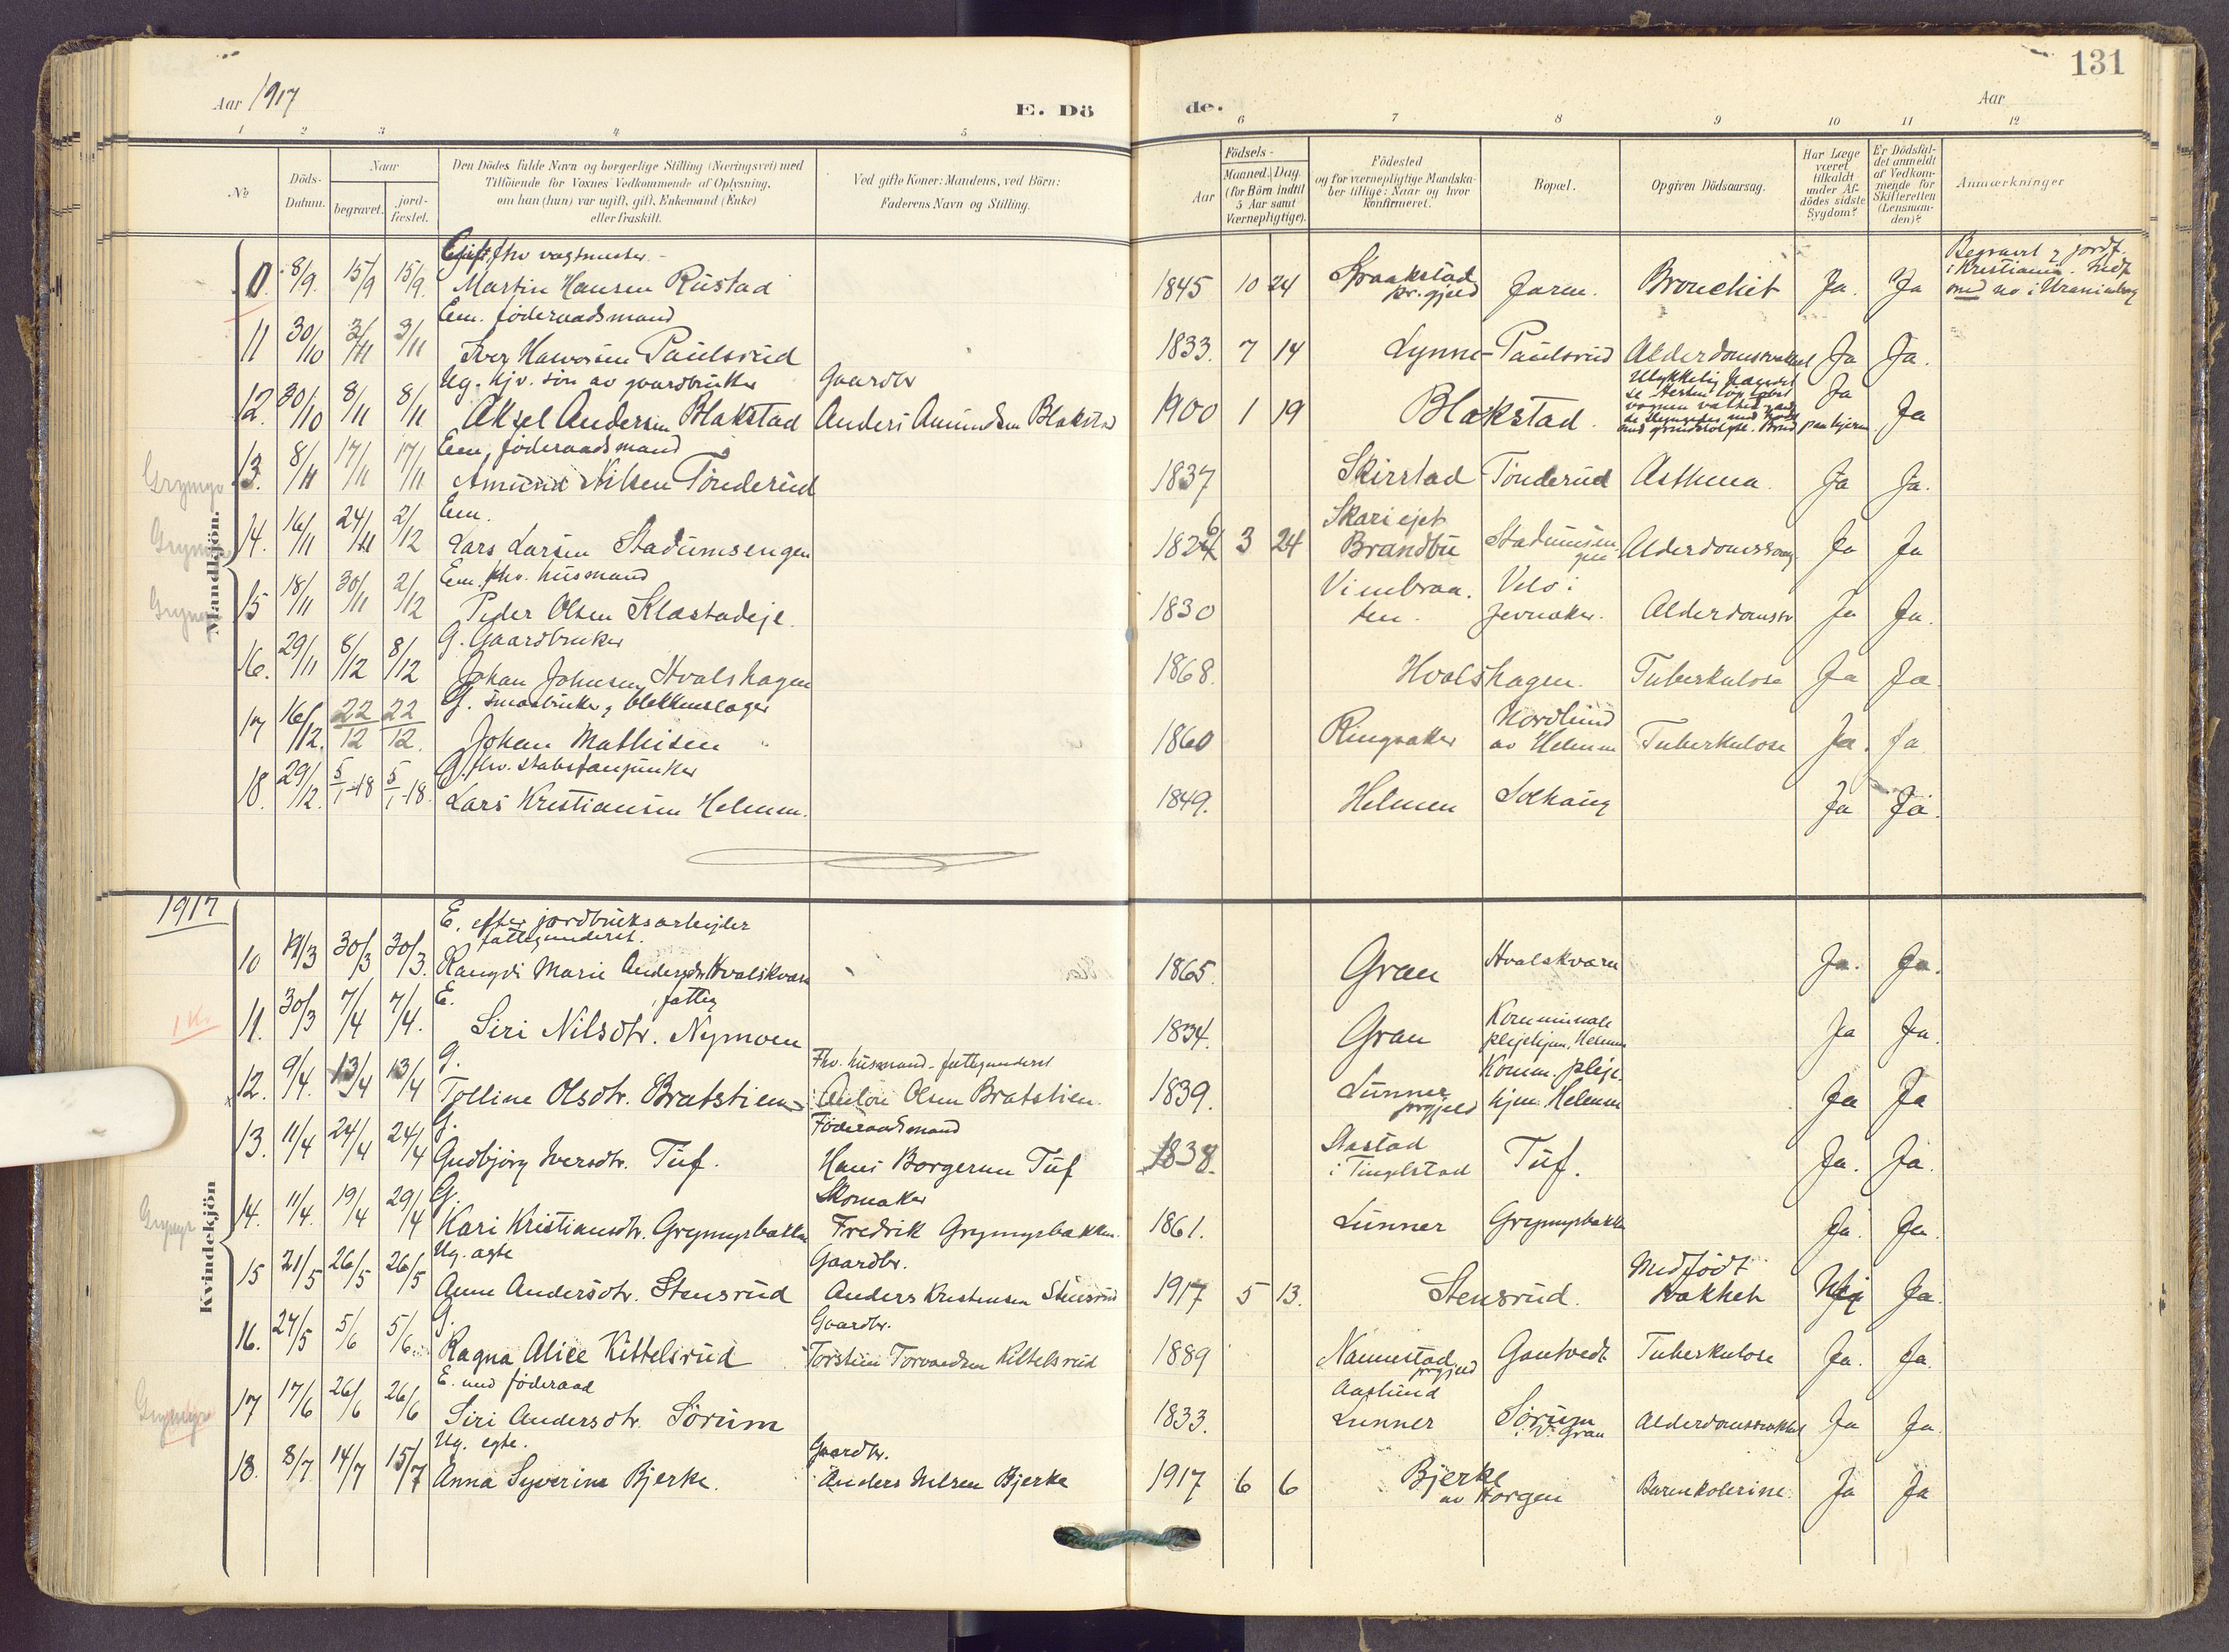 131
Aar 1917
E. Dö
de.
Aar
1 2 3 4 5 6 7 8 9 10 11 12
No
Döds-Datum.
Naar
begravet.
jord-fæstet.
Den Dödes fulde Navn og borgerlige Stilling (Næringsvei) med
Tilföiende for Voxnes Vedkommende af Oplysning,
om han (hun) var ugift, gift, Enkemand (Enke)
eller fraskilt.
Ved gifte Koner: Mandens, ved Börn:
Faderens Navn og Stilling.
Födsels-
Aar
Maaned. Dag.
(for Börn indtil
5 Aar samt
Værnepligtige).
Födested
og for værnepligtige Mandska-
ber tillige: Naar og hvor
konfirmeret.
Bopæl.
Opgiven Dödsaarsag.
Har Læge
været
tilkaldt
under Af-
dödes sidste
Sygdom?
Er Dödsfal-
det anmeldt
af Vedkom-
mende for
Skifteretten
(Lensman-
den)?
Anmærkninger
Mandkjön.
Gift, fhv vagtmester
10. 8/9. 15/9 15/9. Martin Hansen Rustad 1845 10 24 Kraakstad pr.gjeld Jaren. Bronchit Ja. Ja
Begravet & jordf. i Kristiania. Indf. med no i Uranienborg
Em. föderaadsmand
11 30/10 3/11 3/11 Iver Hansen Paulsrud 1833. 7 14 Lynne- Paulsrud Alderdomssvakhet Ja Ja.
Ug. hjv. sön av gaardbruker Gaardbr
12. 30/10 8/11 8/11 Aksel Andersen Blakstad Anders Amundsen Blakstad 1900 1 19 Blakstad. Ja Ja
Em, föderaadsmand
13. 8/11 17/11 17/11 Amund Nilsen Tönderud 1837 Skirstad Tönderud Asthma. Ja Ja.
Em.
14. 16/11 24/11 2/12 Lars Larsen Stadumsengen 1826 3 24 Skariejet Brandbu Stadumsengen Alderdomssvag Ja Ja
Em. fhv. husmand
15 18/11 30/11 2/12 Peder Olsen Klæstadeje. 1830 Vienbraaten. Velo i Jevnaker. Alderdomssv Ja Ja.
G. Gaardbruker
16. 29/11 8/12 8/12 Johan Johnsen Hvalshagen 1868. Hvalshagen. Tuberkulose Ja Ja.
G. smaabruker, blekkenslager
17 16/12. 22/12 22/12. Johan Mathisen 1860 Ringsaker Nordlund av Helmen Tuberkulose Ja. Ja
G. fhv. stabsfanejunker
18. 29/12. 5/1-18 5/1-18. Lars Kristiansen Helmen. 1849. Helmen Solhaug Ja Ja.
1917
Kvindekjön
E. efter jordbruksarbejder
fattigunderst.
10 19/3 30/3 30/3. Rangdi Marie Andersdtr Hvalskvarn 1865. Gran Hvalskvarn Ja. Ja.
E. fattig
11. 30/3 7/4 7/4. Siri Nilsdtr. Nymoen 1834. Gran Kommunale plejehjem, Helmen Ja Ja.
G. Fhv. husmand - fattigunderst
12. 9/4. 13/4 13/4 Tolline Olsdtr. Bratstien Anton Olsen Bratstien. 1839. Lunner prgjeld Komm. plejehjem Helmen Ja Ja
G. Föderaadsmand
13. 11/4 24/4 24/4 Gudbjörg Iversdtr. Tuf. Hans Borgersen Tuf 1838. Aastad i Tingelstad Tuf. Ja. Ja.
G. Skomaker
14. 11/4. 19/4 29/4 Kari Kristiansdtr. Grymyrbakken Fredrik Grymyrbakken. 1861. Lunner Grymyrbakken Ja. Ja.
Ug. egte Gaardbr.
15 21/5 26/5 26/5 Anne Andersdtr. Stensrud Anders Kristensen Stensrud 1917 5 13. Stensrud. Medfödt svakhet Nej Ja.
G. Gaardbr.
16. 27/5 5/6 5/6 Ragna Alice Kittelsrud Torstein Torvaldsen Kittelsrud 1889 Nannestad prgjeld Gantvedt Tuberkulose Ja. Ja.
E. med föderaad
17 17/6 26/6 26/6 Siri Andersdtr. Sörum 1833. Aaslund Lunner Sörum i V. Gran Alderdomssvakhet Ja Ja.
Ug. egte. Gaardbr.
18. 8/7 14/7 15/7 Anna Syverine Bjerke. Anders Nilsen Bjerke 1917 6 6 Bjerke av Horgen Barnekolerine. Ja Ja